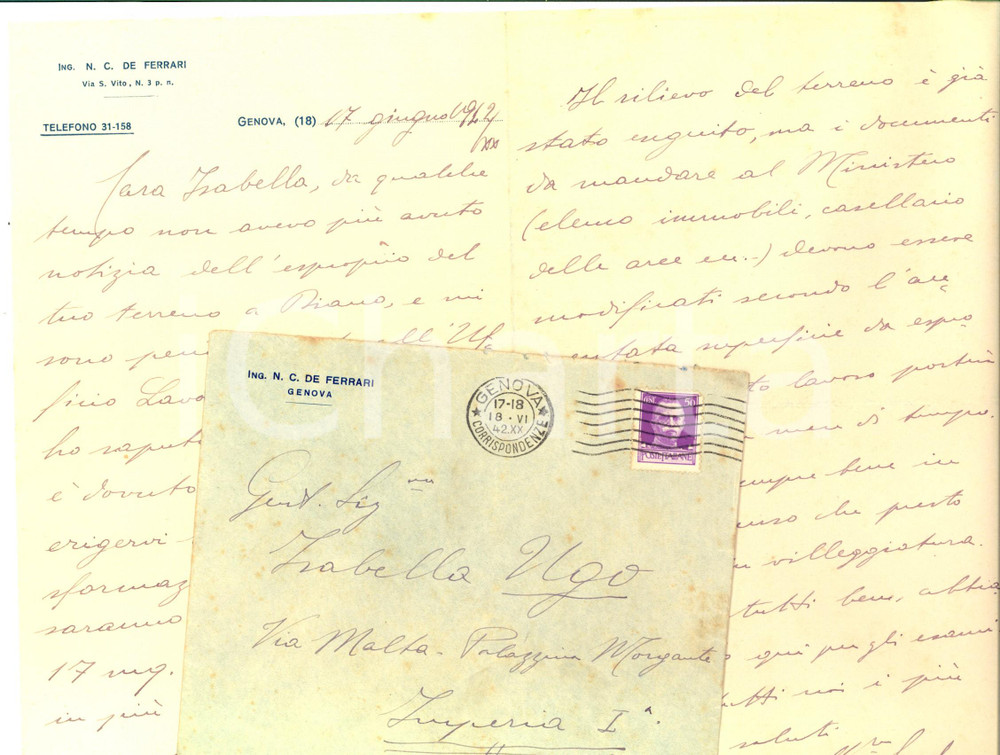 ING. N. C. DE FERRARI
Via S. Vito, N. 3 p. n.
TELEFONO 31-158
GENOVA, (18) 17 giugno 1942/XX
Cara Isabella, da qualche
tempo non avevo più avuto
notizia dell'esproprio del
tuo terreno a Diano, e mi
sono
ficio Lavo
ho saputo
è dovuto
erigervi
sformaz
saranno
17 mq.
in più
Il rilievo del terreno è già
stato eseguito, ma i documenti
da mandare al Ministero
(elenco immobili, casellario
delle aree ecc..) devono essere
modificati secondo l'au=
mentata superficie da espro
to lavoro portrà
meri di tempo.
empre bene in
enso che presto
in villeggiatura.
tutti bene, abbia
qui per gli esami
tutti noi i più
saluti
ING. N. C. DE FERRARI
GENOVA
GENOVA
17-18
18·VI
42.XX
CORRISPONDENZE
CENT. 50
POSTE ITALIANE
Gent. Sig.na
Isabella Ugo
Via Malta - Palazzina Morgante
Imperia Iª.
iCharta